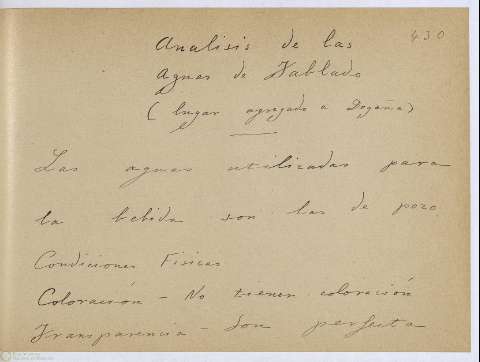 430
Analisis de las
Aguas de Nablado
(lugar agregado a Dogaña)
Las aguas utilizadas para
la bebida son las de pozo
Condiciones Fisicas
Coloración - No tienen coloración
Transparencia - Son perfecta